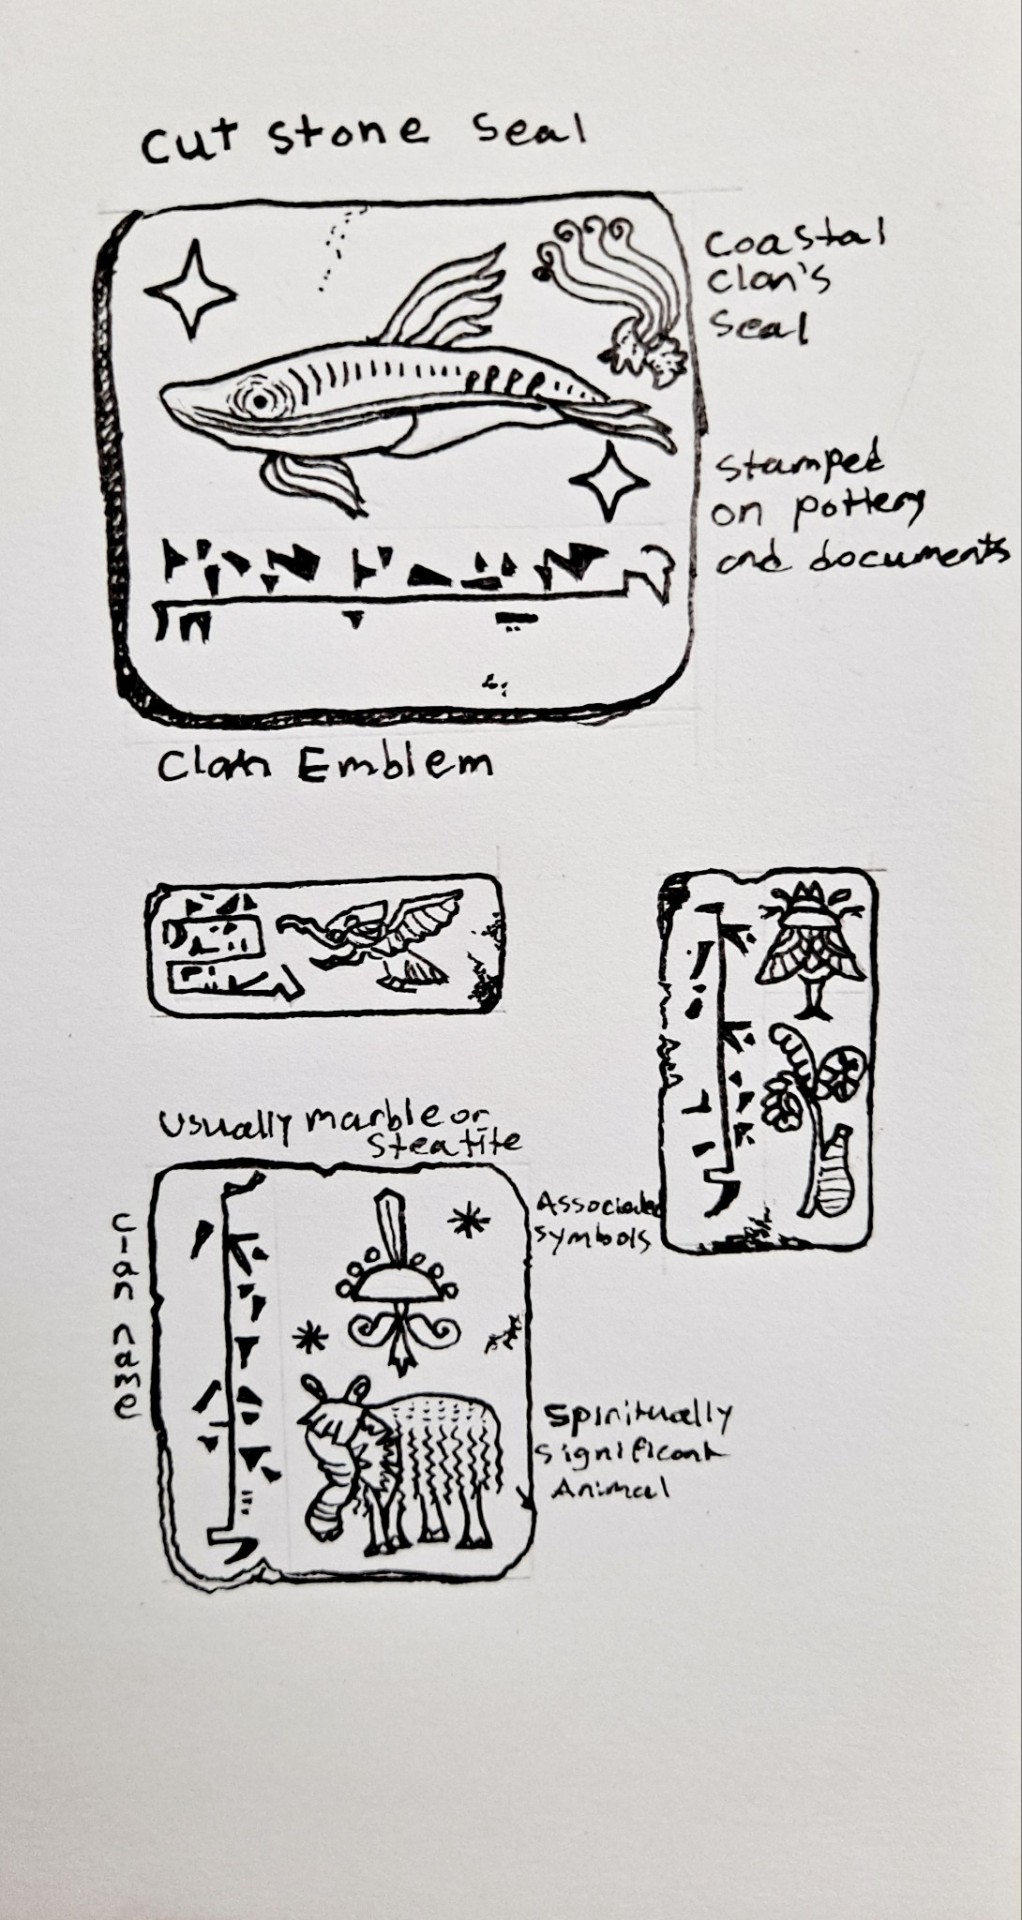 Cut Stone Seal
Coastal
Clan's
Seal
Stamped
on pottery
and documents
Clan Emblem
Usually marble or
Steatite
Associated
symbols
Clan name
Spiritually
significant
Animal